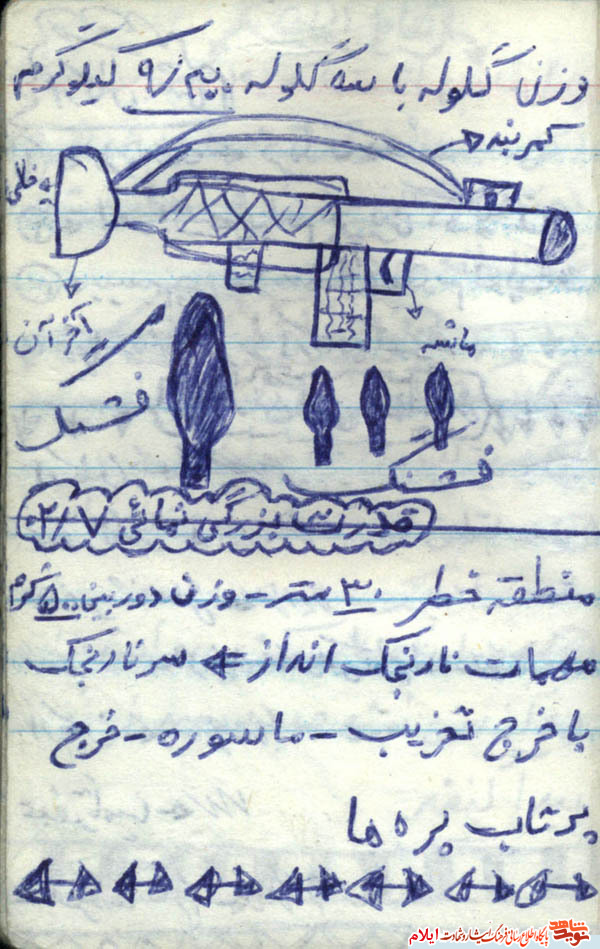 وزن گلوله با سه گلوله نیم کیلوگرم
کمربند
قلمی
آخر آن
ماشه
فشنگ
فشنگ
قدرت بزرگی نمائی ۲/۷
منطقه خطر ۳۰ متر - وزن دوربین ۵۰۰ گرم
مهمات نارنجک انداز ← سر نارنجک
با خرج تخریب - ماسوره - خرج
پرتاب پره ها
نوید شاهد پایگاه اطلاع رسانی فرهنگ ایثار و شهادت ایلام